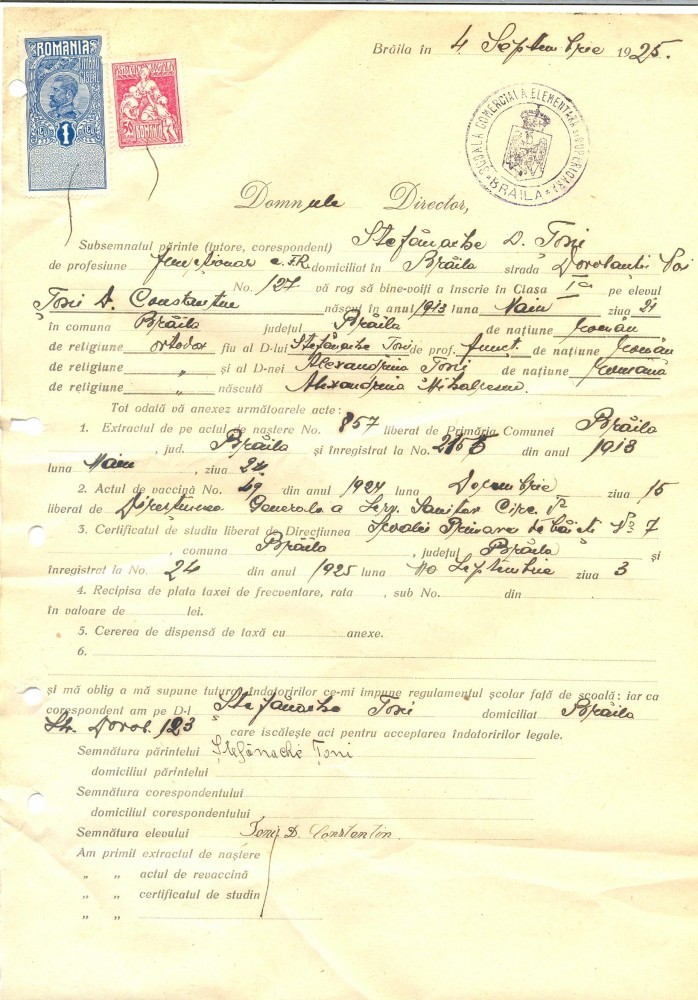 ROMÂNIA
1
50
ROMÂNIA
Brăila în 4 Septembrie 1925.
ȘCOALA COMERCIALĂ ELEMENTARĂ ȘI SUPERIOARĂ
* BRĂILA *
Domnule Director,
Subsemnatul părinte (tutore, corespondent) Ștefănache D. Țoni
de profesiune funcționar C.F.R. domiciliat în Brăila strada Dorobanți
No. 127 vă rog să bine-voiți a înscrie în Clasa I-a pe elevul
Țoni D. Constantin născut în anul 1913 luna Maiu ziua 21
în comuna Brăila județul Brăila de națiune Român
de religiune ortodox fiu al D-lui Ștefănache Țoni de prof. funcț. de națiune Român
de religiune „ și al D-nei Alexandrina Țoni de națiune Română
de religiune „ născută Alexandrina Mihalcescu
Tot odată vă anexez următoarele acte:
1. Extractul de pe actul de naștere No. 857 liberat de Primăria Comunei Brăila
, jud. Brăila și înregistrat la No. din anul 1913
luna Maiu, ziua 24
2. Actul de vaccină No. 49 din anul 1924 luna Decembrie ziua 15
liberat de Direcțiunea Generală a Serv. Sanitar Circ.
3. Certificatul de studiu liberat de Direcțiunea Școalei Primare de băieți No 7
, comuna Brăila, județul Brăila și
înregistrat la No. 24 din anul 1925 luna Septembrie ziua 3
4. Recipisa de plata taxei de frecventare, rata , sub No. din
în valoare de lei.
5. Cererea de dispensă de taxă cu anexe.
6.
și mă oblig a mă supune tuturor îndatoririlor ce-mi impune regulamentul școlar față de școală: iar ca
corespondent am pe D-l Ștefănache Țoni domiciliat Brăila
Str. Dorob. 123 care iscălește aci pentru acceptarea îndatoririlor legale.
Semnătura părintelui Ștefănache Țoni
domiciliul părintelui
Semnătura corespondentului
domiciliul corespondentului
Semnătura elevului Țoni D. Constantin.
Am primit extractul de naștere
„ „ actul de revaccină
„ „ certificatul de studin
„ „